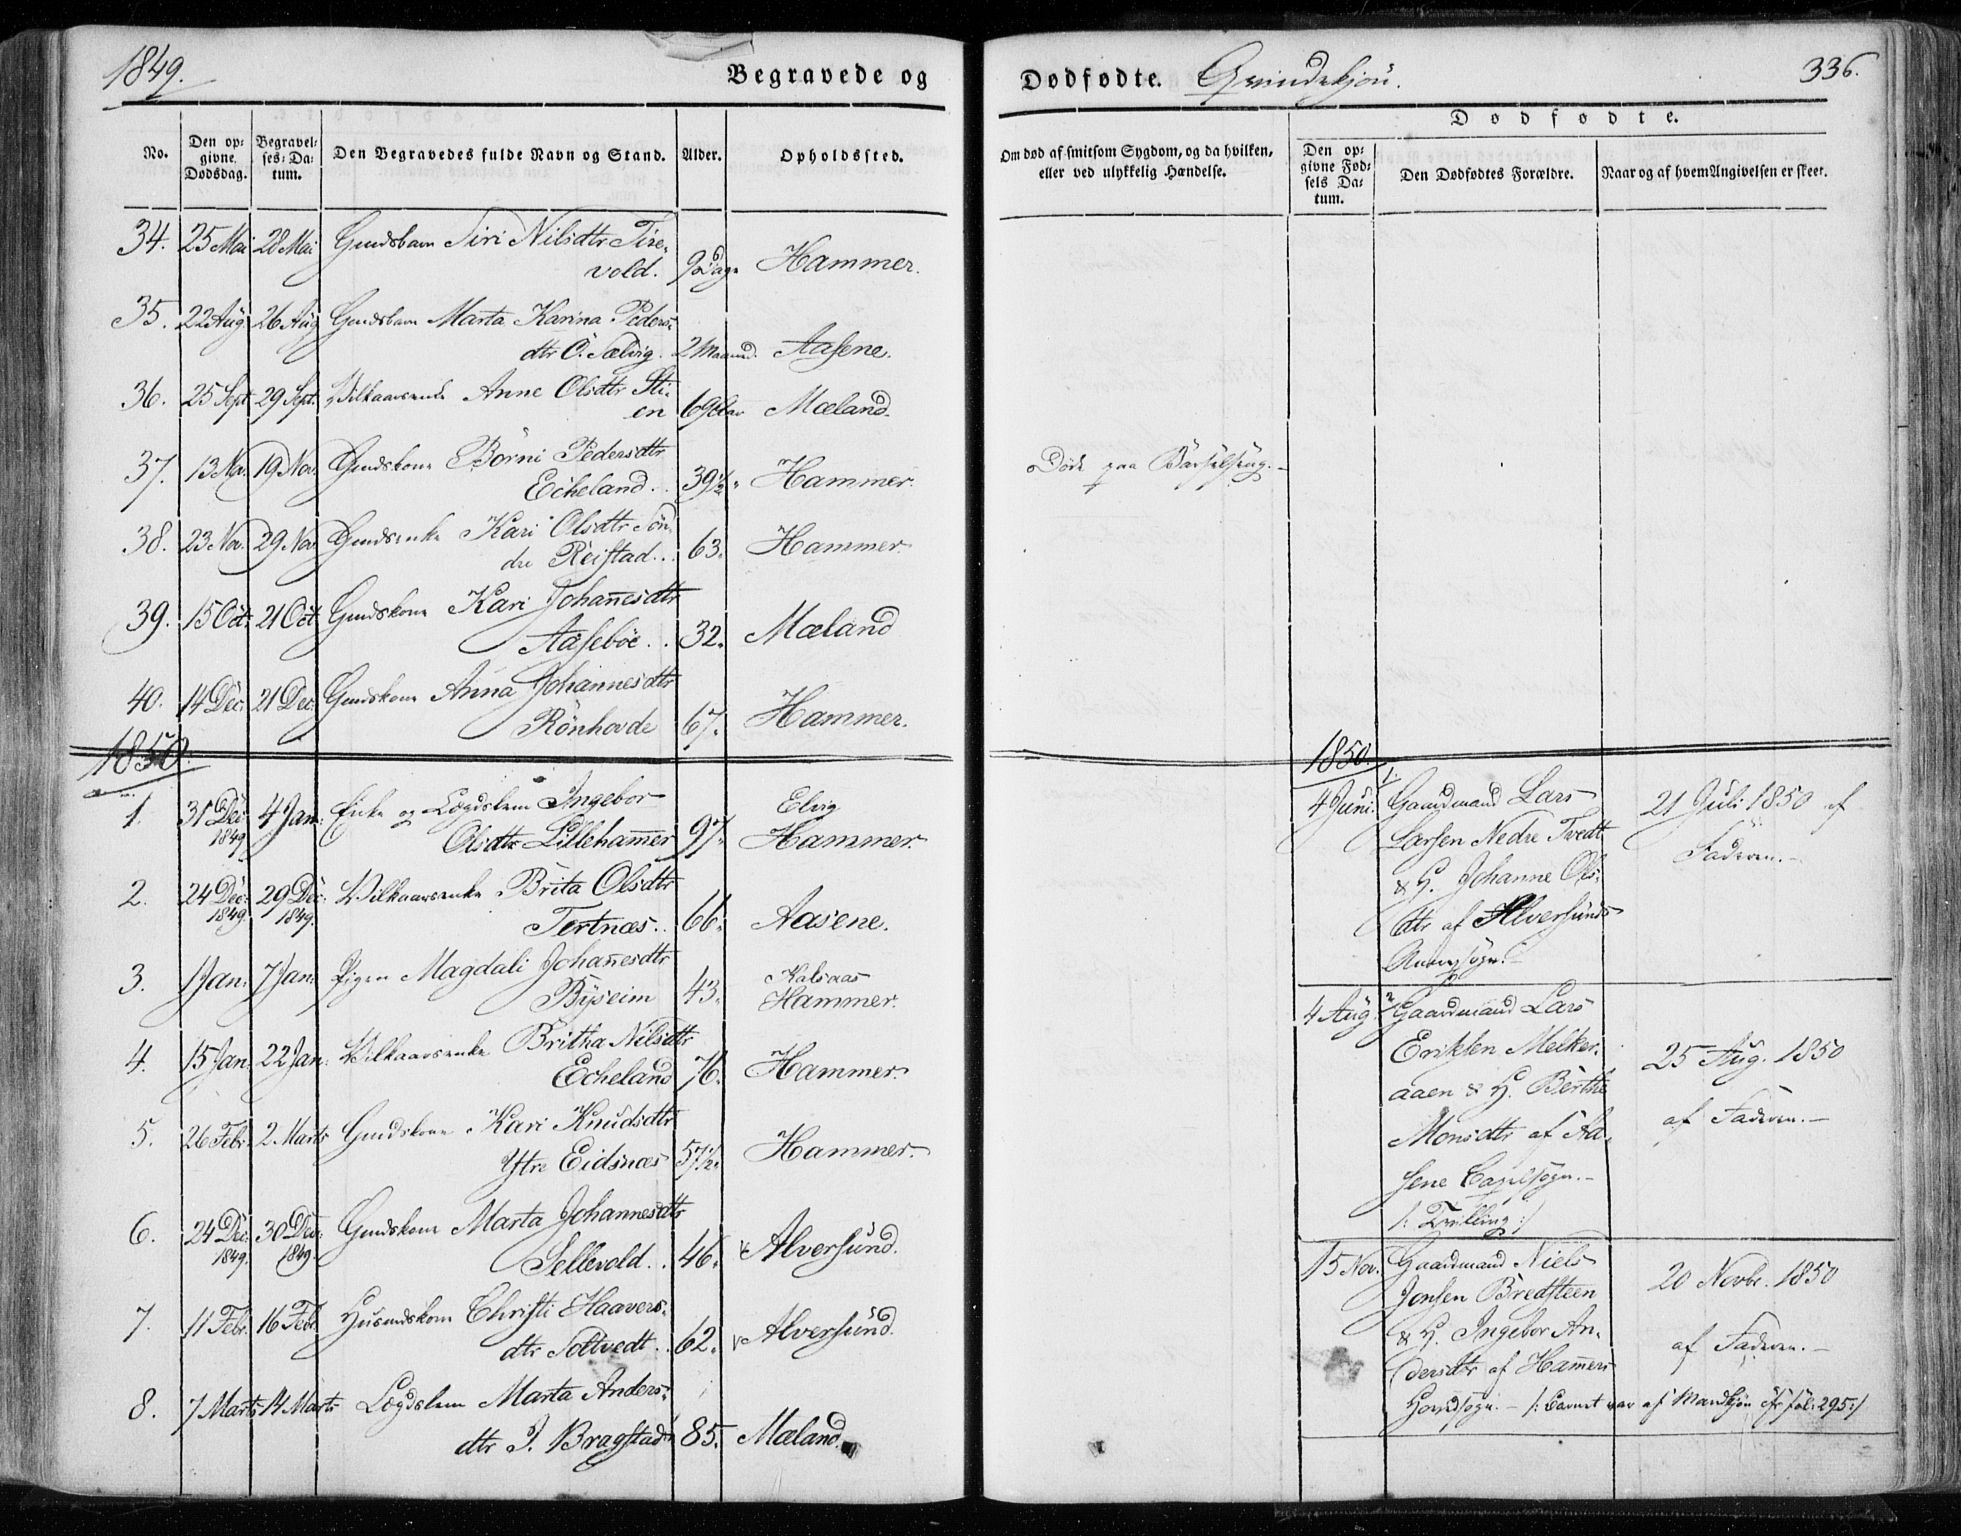 1849.
Begravede og
Dødfødte. Qvindekjön.
336.
No.
Den op-
givne
Dødsdag.
Begravel-
ses-Da-
tum.
Den Begravedes fulde Navn og Stand.
Alder.
Opholdssted.
Om død af smitsom Sygdom, og da hvilken,
eller ved ulykkelig Hændelse.
Dødfødte.
Den op-
givne Fød-
sels Da-
tum.
Den Dødfødtes Forældre.
Naar og af hvem Angivelsen er skeet.
34. 25 Mai 28 Mai Gmdsbarn Siri Nilsdtr Tire-
vold. 9 Dage Hammer.
35. 22 Aug 26 Aug Gmdsbarn Marta Karina Peders-
dtr Ö. Sælvig. 2 Maaned. Aasene.
36. 25 Sept 29 Sept. Vilkaarsenke Anne Olsdtr Sti-
en 69 Aar Mæland.
37. 13 Nov. 19 Nov. Gmdskone Börni Pedersdtr
Echeland. 39 1/2 " Hammer.
Döde paa Barselseng. -
38. 23 Nov. 29 Nov Gmdsenke Kari Olsdtr Sön-
dre Reistad. 63. Hammer.
39. 15 Oct. 21 Oct Gmdskone Kari Johannesdtr
Aaseböe. 32. Mæland
40. 14 Dec. 21 Dec. Gmdskone Anna Johannesdtr
Rönhovde 67. Hammer.
1850.
1. 31 Dec 4 Jan. Enke og Lægdslem Ingebor
1849 Olsdtr Lillehammer 97. Elvig
Hammer
2. 24 Dec. 29 Dec. Vilkaarsenke Brita Olsdtr
1849. 1849. Tertnæs. 66. Aasene.
3. 1 Jan. 7 Jan. Pigen Magdali Johannesdtr Kalsaas
Byseim 43. Hammer.
4. 15 Jan. 22 Jan. Vilkaarsenke Britha Nilsdtr
Echeland 76. Hammer.
5. 26 Febr. 2 Marts Gmdskone Kari Knudsdtr
Ytre Eidsnæs 57 1/2. Hammer.
6. 24 Dec. 30 Dec. Gmdskone Marta Johannesdtr
1849. 1849. Sellevold. 46. Alversund.
7. 11 Febr. 16 Febr. Husmdskone Christi Haavers-
dtr Toltvedt. 62. Alversund.
8. 7 Marts 14 Marts Lægdslem Marta Anders-
dtr I. Bragstad 85. Mæland.
1850.
1.
4 Juni. Gaardmand Lars 21 Juli 1850 af
Larsen Nedre Tvedt Faderen. -
& H. Johanne Ols-
dtr af Alversunds
Annexsogn.
2.
4 Aug. Gaardmand Lars
Eriksen Melker- 25 Aug. 1850
aaen & H. Berthe
Monsdtr af Aa- af Faderen. -
sene Capelsogn. -
/: Tvilling :/
15 Nov. Gaardmand Niels
Jonsen Bredsteen 20 Novbr. 1850
& H. Ingebor An-
dersdtr af Hammers af Faderen. -
Hovedsogn. - /: Barnet var af Mandkjön cfr fol: 295 :/